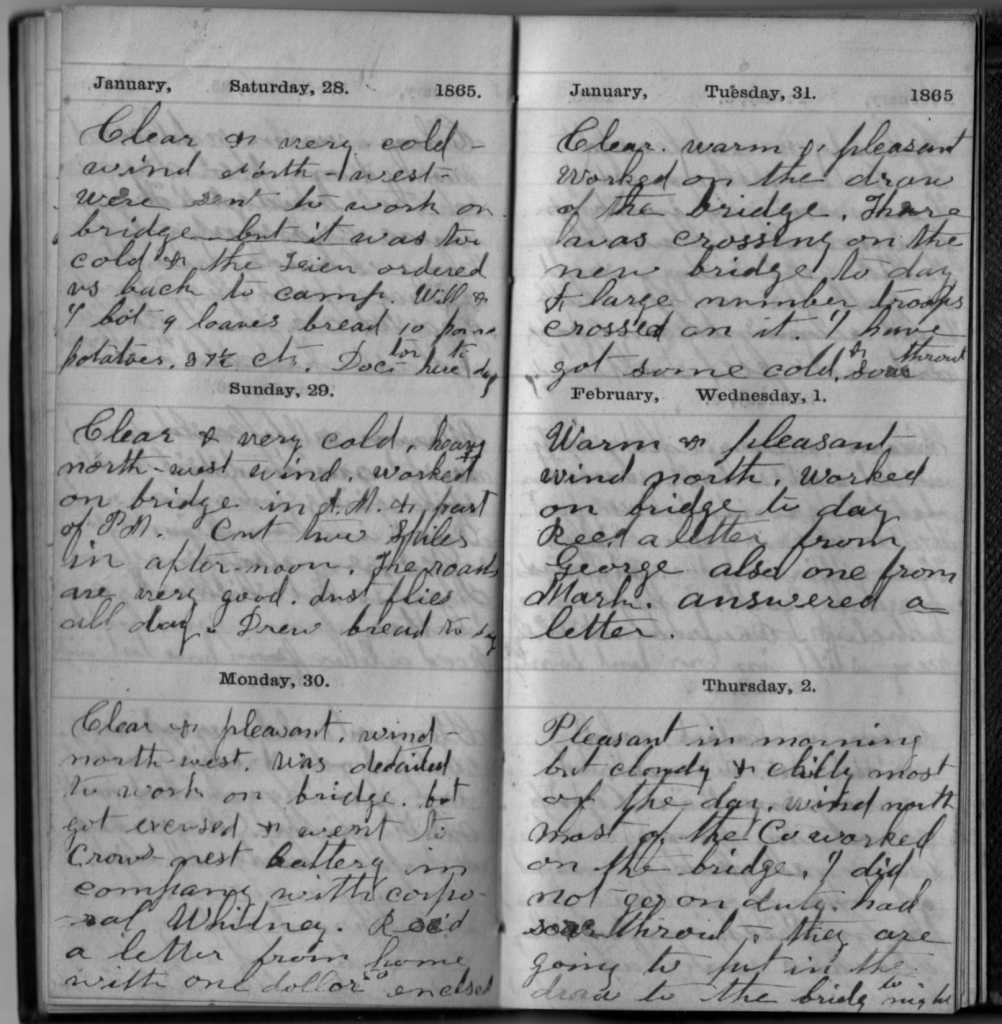 January, Saturday, 28. 1865.
Clear & very cold -
wind North-west-
were sent to work on
bridge but it was too
cold & the Leien ordered
us back to camp. Will &
I bot 9 loaves bread 10
potatoes. 37½ cts. Doctor here to day
Sunday, 29.
Clear & very cold, heavy
north-west wind. worked
on bridge in A.M. & part
of P.M. Cut two Spiles
in after-noon. The roads
are very good. dust flies
all day. Drew bread to day
Monday, 30.
Clear & pleasant. wind-
north-west. was detailed
to work on bridge. but
got excused & went to
Crow-nest battery in
company with corpo-
-ral Whitney. Rec'd
a letter from home
with one dollar enclsed
January, Tuesday, 31. 1865
Clear. warm & pleasant
Worked on the draw
of the bridge. There
was crossing on the
new bridge, to day
& large number troops
crossed on it. I have
got some cold, & sore throid
February, Wednesday, 1.
Warm & pleasant
wind north. worked
on bridge to day
Rec'd a letter from
George also one from
Mark. answered a
letter.
Thursday, 2.
Pleasant in morning
but cloudy & chilly most
of the day. wind north
most of the Co worked
on the bridge. I did
not go on duty. had
sore throid - they are
going to put in the
draw to the bridg to night